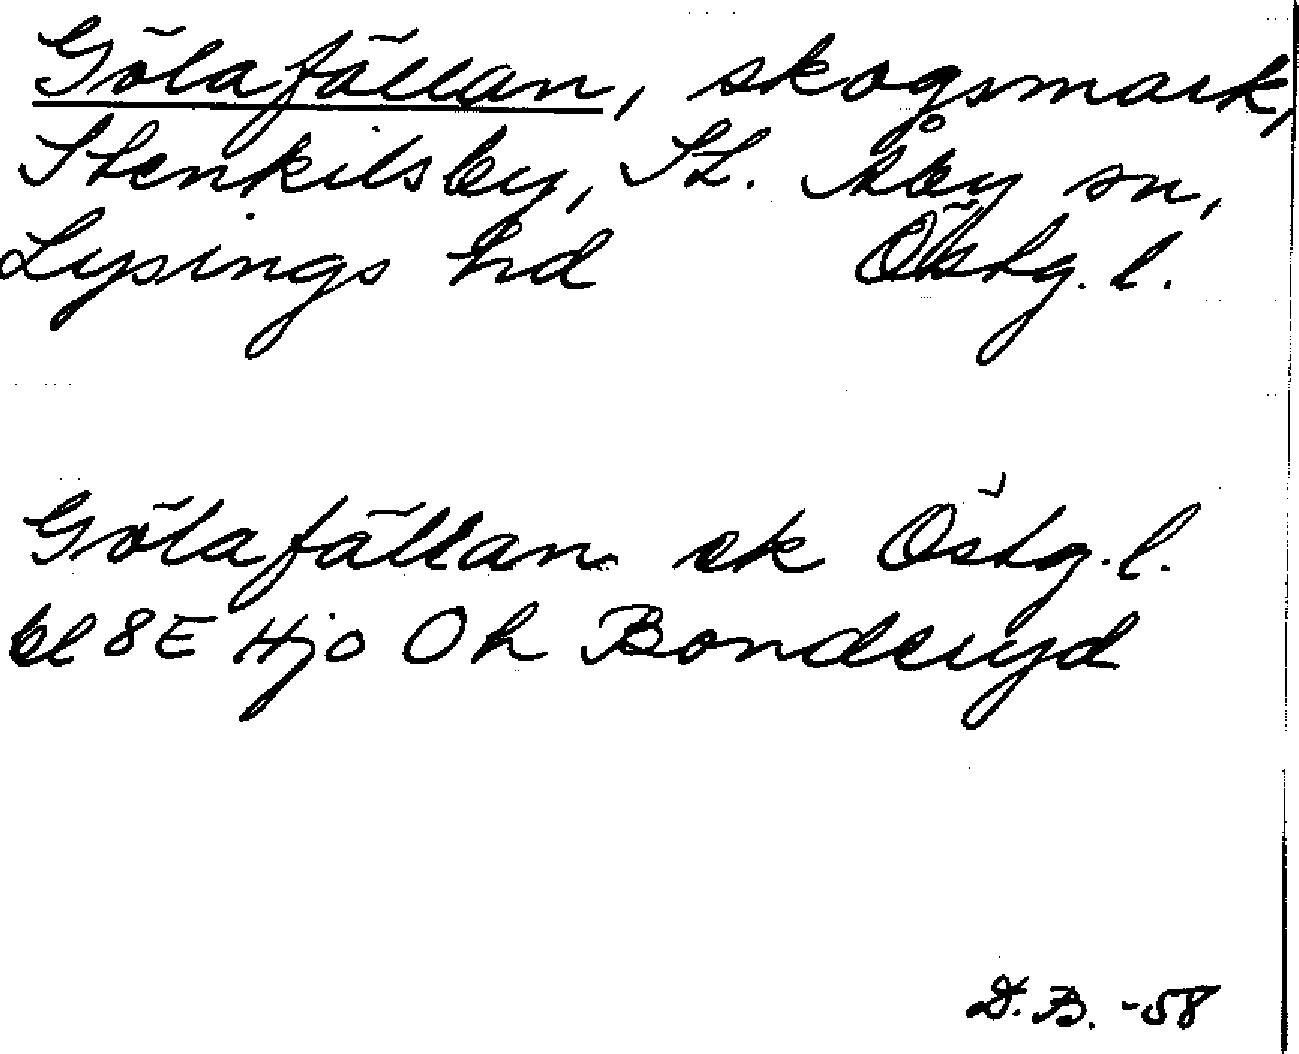 Gölafällan, skogsmark,
Stenkilsby, St. Åby sn,
Lysings hd Östg. l.
Gölafällan sk Östg. l.
bl 8E Hjo Oh Bonderyd
D. B. -58